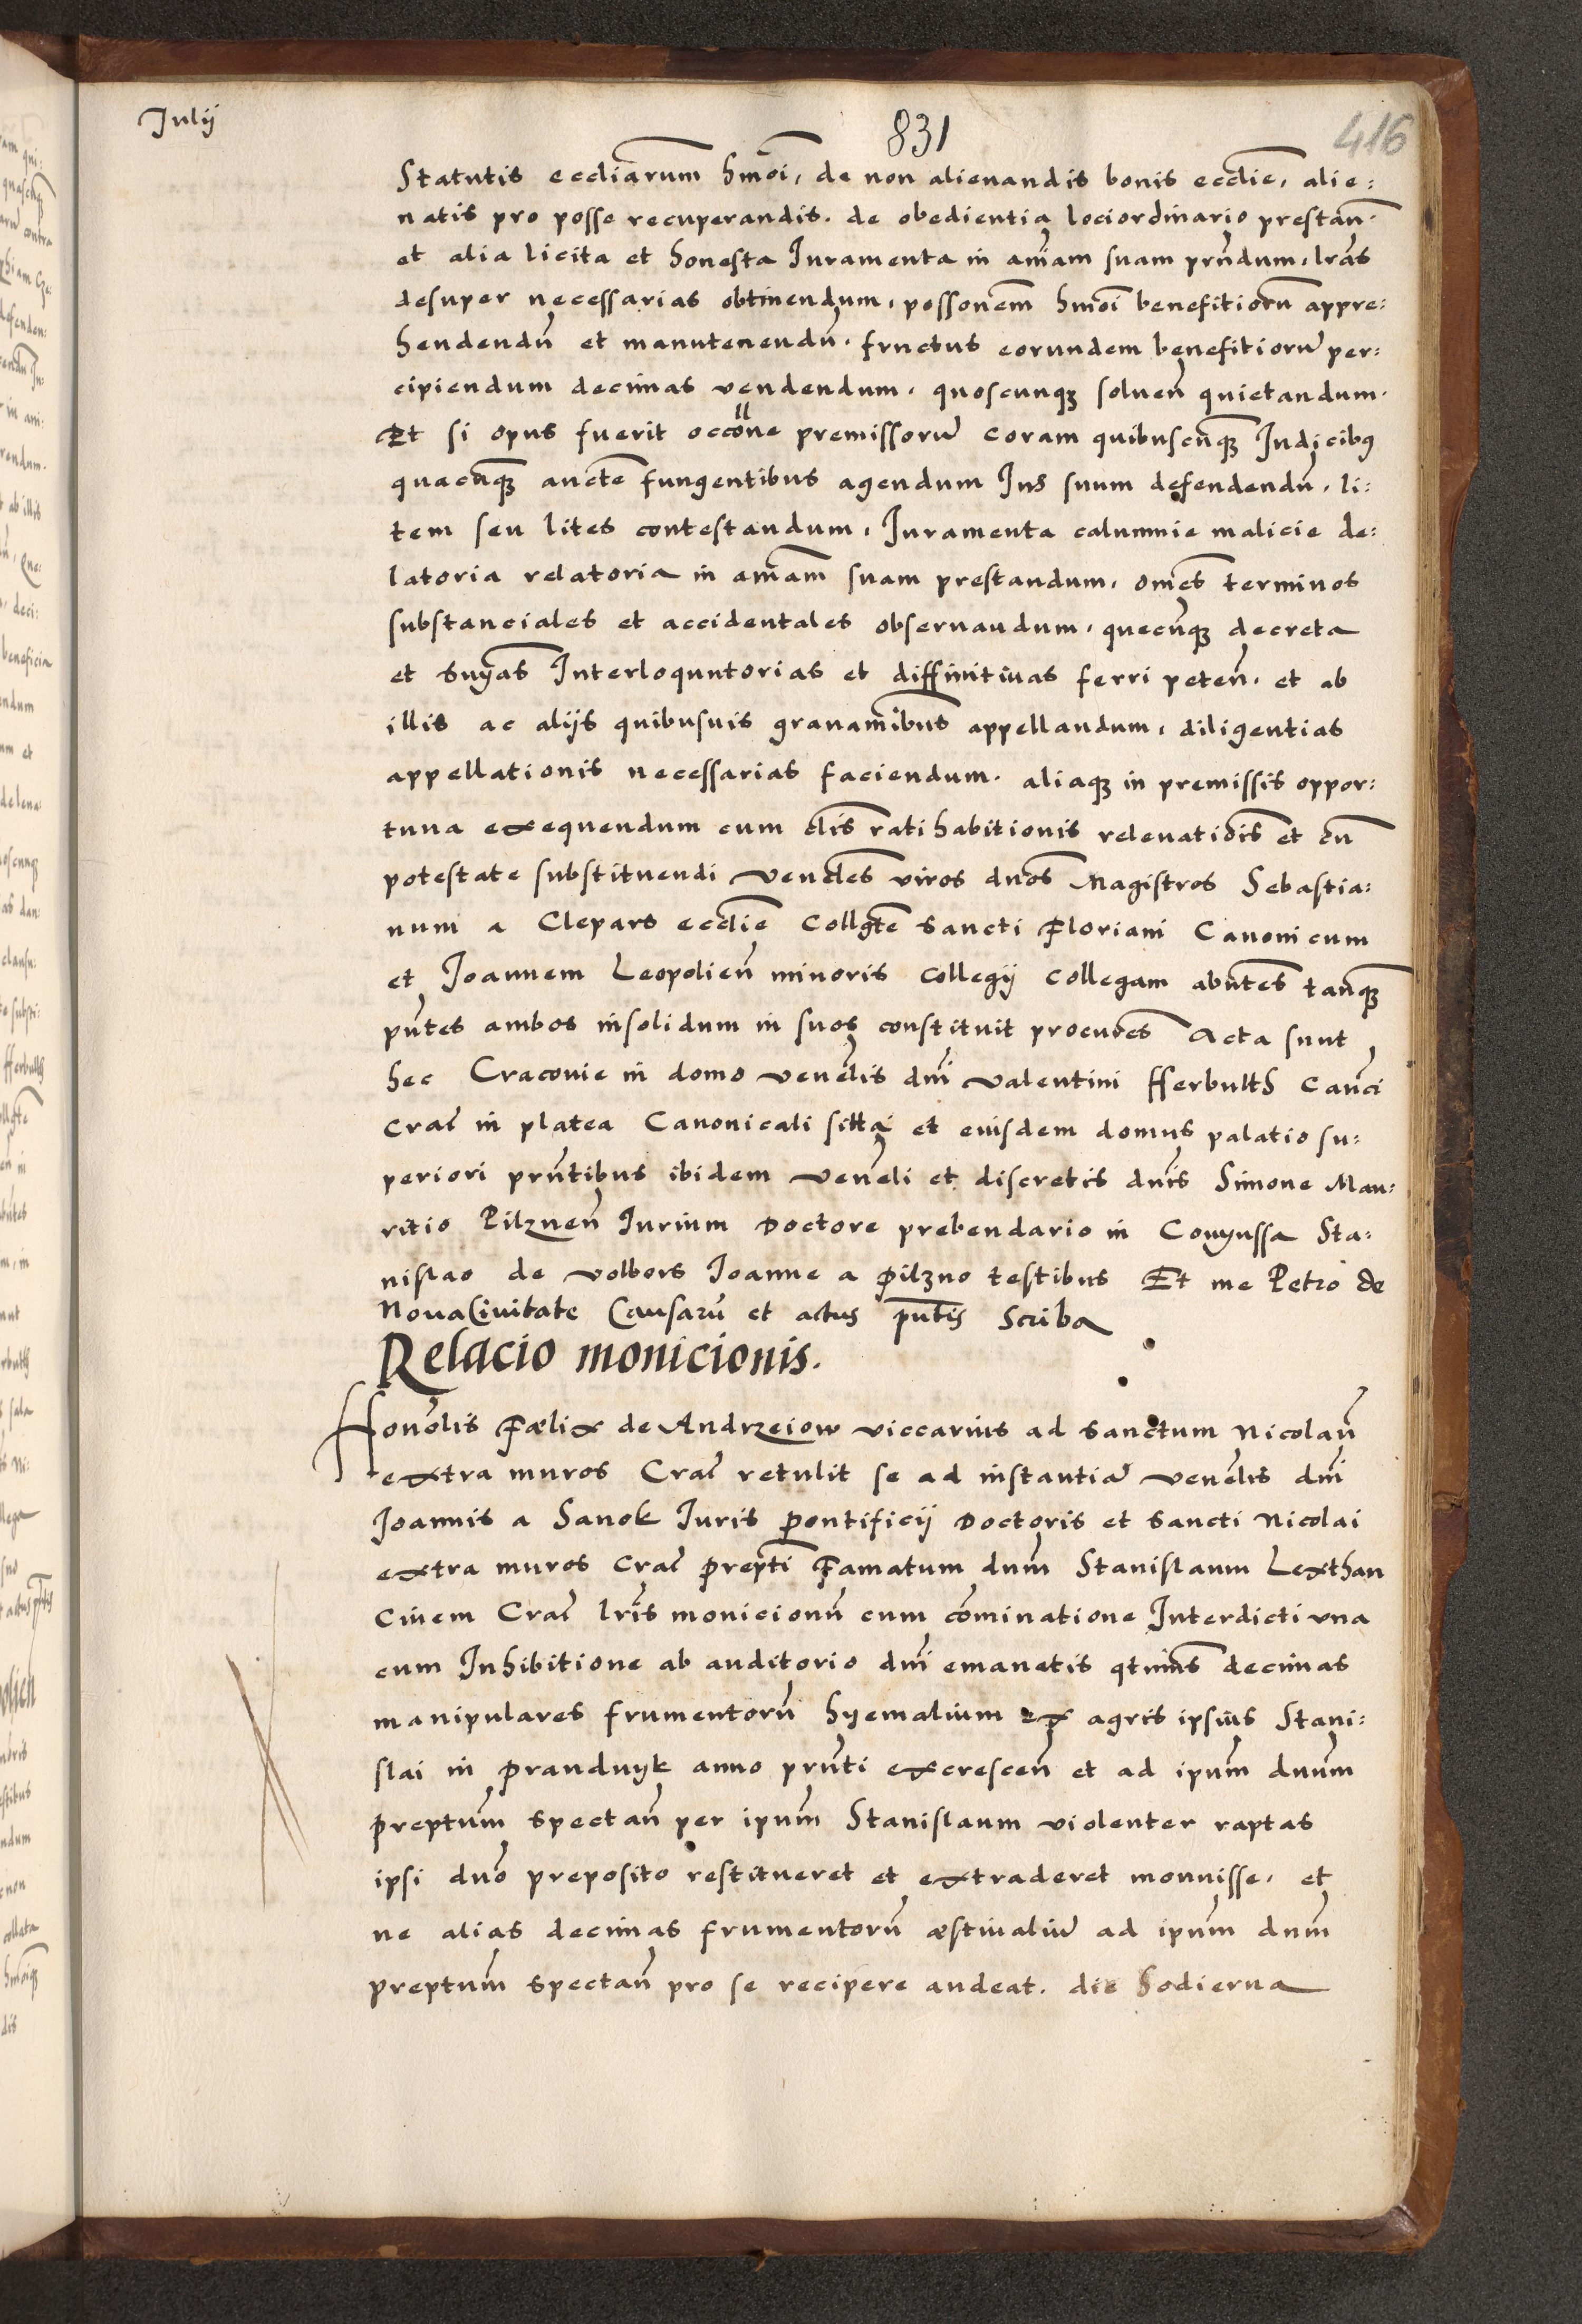 Julij
831
416
Statutis ecclīarum hmōi, de non alienandis bonis ecclīe, alie:
natis pro posse recuperandis. de obedientia lociordinario prestan̄.
et alia licita et honesta Iuramenta in aīam suam prn̄dum, lrās
desuper necessarias obtinendum, possonem̄ hmōi benefitiorū appre:
hendendū et manutenendū. fructus eorundem benefitiorū per:
cipiendum decimas vendendum, quoscunq₃ soluen̄ quietandum.
Et si opus fuerit occōne premissorū coram quibuscūq₃ Iudicibꝰ
quacūq₃ aucte̅ fungentibus agendum Ius suum defendendū, li:
tem seu lites contestandum, Iuramenta calumnie malicie de:
latoria relatoria in aīam suam prestandum, om̄es terminos
substanciales et accidentales obseruandum, quecūq₃ decreta
et sn̄yas Interloquutorias et diffinitiuas ferri peten̄. et ab
illis ac alijs quibusuis grauamībus appellandum, diligentias
appellationis necessarias faciendum. aliaq₃ in premissis oppor:
tuna exequendum cum clīs ratihabitionis releuatiōis et cū
potestate substituendi venēles viros dnōs Magistros Sebastia:
num a Clepars ecclīe Collgte̅ Sancti Floriani Canonicum
et Joannem Leopolien̄ minoris Collegij Collegam abūtes tanq₃
pn̄tes ambos insolidum in suos constituit procures̄ Acta sunt
hec Cracouie in domo venēlis dnī Valentini fferbulth Canci̅
Crac̄ in platea Canonicali sitta et eiusdem domus palatio su:
periori prn̄tibus ibidem venēli et discretis dnīs Simone Mau:
ritio Pilznen̄ Iurium Doctore prebendario in Conyussa Sta:
nislao de volbors Joanne a Pilzno testibus Et me Petro de
NouaCiuitate Causarū et actus pn̄tis Scriba
Relacio monicionis.
Honōlis Fælix de Andrzeiow viccarius ad Sanctum Nicolaū
extra muros Crac̄ retulit se ad instantiā venēlis dnī
Joannis a Sanok Iuris Pontificij Doctoris et Sancti Nicolai
extra muros Crac̄ prepti̅ Famatum dnm̄ Stanislaum Lexthan
Ciuem Crac̄ lrīs monicionū cum cōminatione Interdicti vna
cum Inhibitione ab auditorio dnī emanatis qtinūs decimas
manipulares frumentorū hyemalium ex agris ipsius Stani:
slai in Prandnyk anno prn̄ti excrescen̄ et ad ipūm dnūm
preptūm spectan̄ per ipūm Stanislaum violenter raptas
ipsi dnō preposito restitueret et extraderet monuisse, et
ne alias decimas frumentorū æstiualiū ad ipūm dnm̄
preptūm spectan̄ pro se recipere audeat. die hodierna